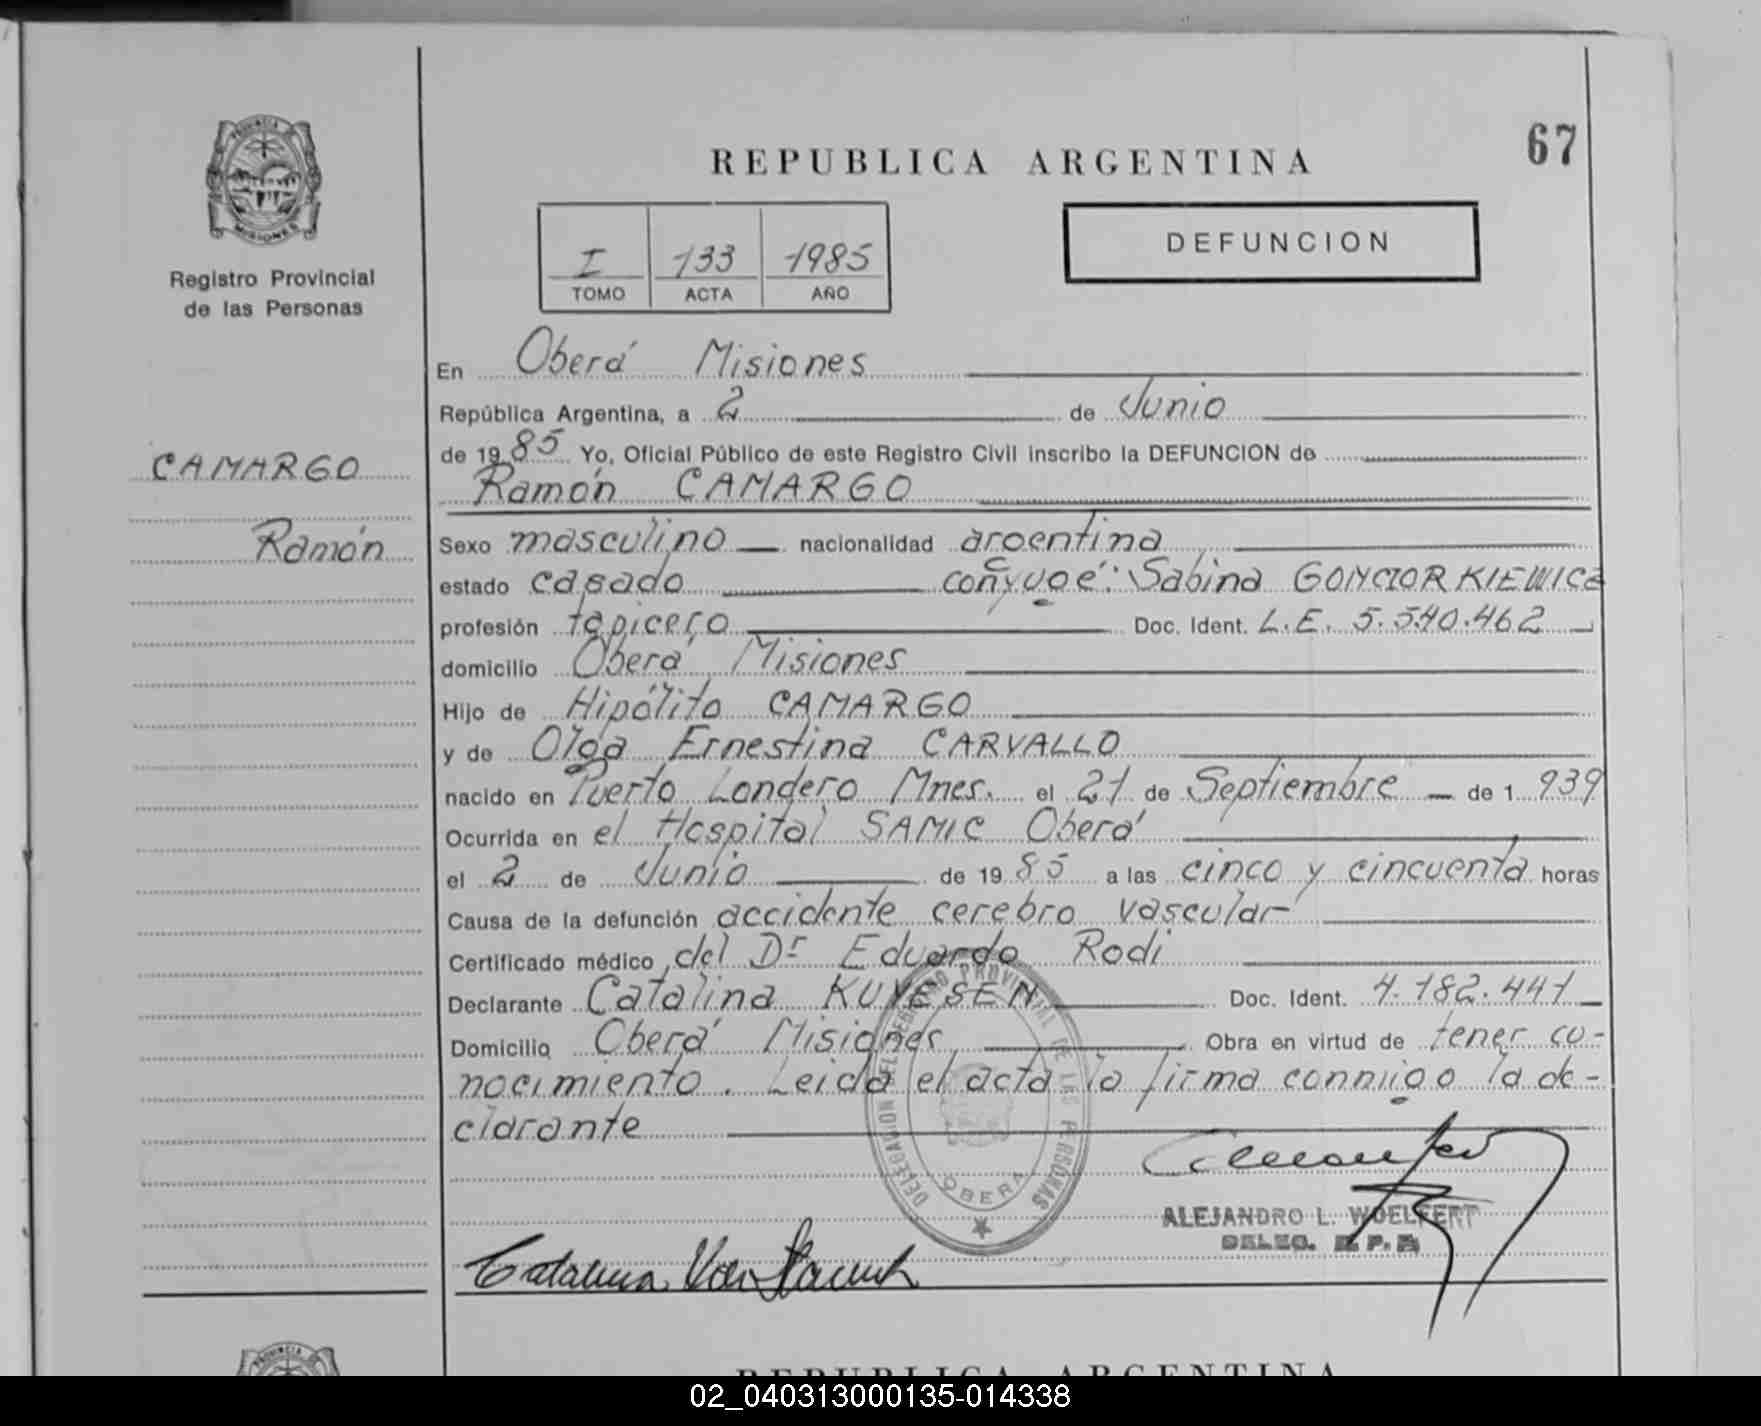 PROVINCIA DE
MISIONES
Registro Provincial
de las Personas
67
REPUBLICA ARGENTINA
DEFUNCION
I 133 1985
TOMO ACTA AÑO
En Oberá Misiones
República Argentina, a 2 de Junio
de 19 85 Yo, Oficial Público de este Registro Civil inscribo la DEFUNCION de
CAMARGO
Ramón CAMARGO
Ramón
Sexo masculino nacionalidad argentina
estado casado conyuge: Sabina GONCIORKIEWICZ
profesión tapicero Doc. Ident. L.E. 5.540.462
domicilio Oberá Misiones
Hijo de Hipólito CAMARGO
y de Olga Ernestina CARVALLO
nacido en Puerto Londero Mnes. el 21 de Septiembre de 1 939
Ocurrida en el Hospital SAMIC Oberá
el 2 de Junio de 19 85 a las cinco y cincuenta horas
Causa de la defunción accidente cerebro vascular
Certificado médico del Dr Eduardo Rodi
Declarante Catalina Doc. Ident. 4.182.441
Domicilio Oberá Misiones Obra en virtud de tener co-
nocimiento. Leida el acta la firma conmigo la de-
clarante
DELEGACION DEL REGISTRO PROVINCIAL DE LAS PERSONAS
OBERA
ALEJANDRO L. WOELFERT
DELEG. R. P. P.
Catalina
PROVINCIA DE
REPUBLICA ARGENTINA
02_040313000135-014338